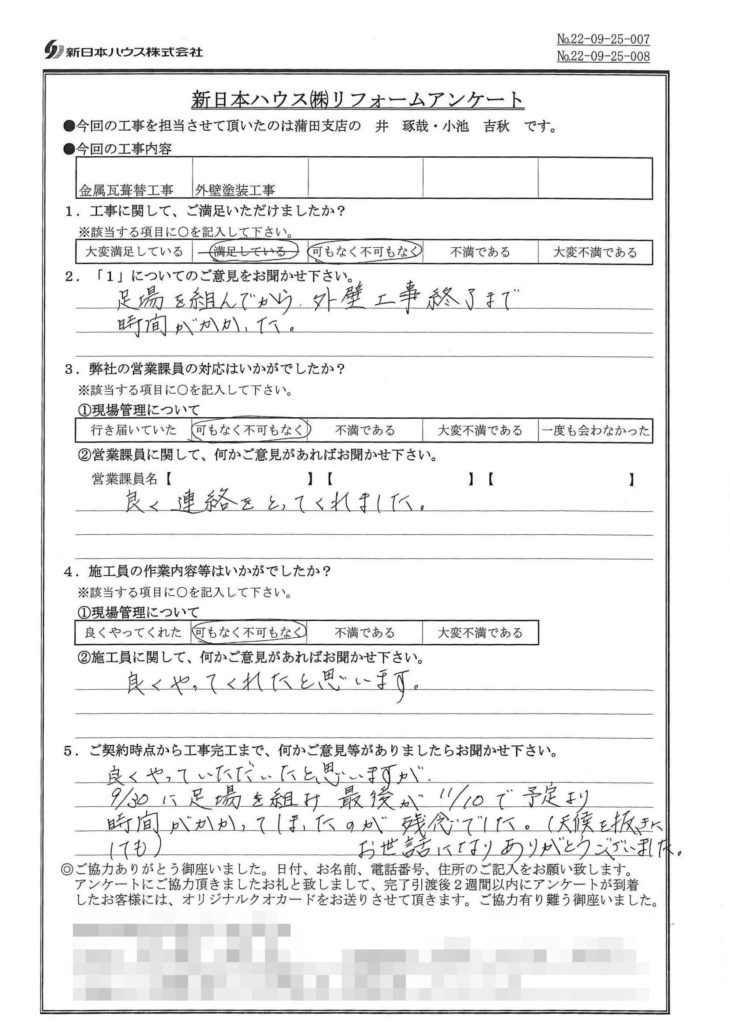 新日本ハウス株式会社
No.22-09-25-007
No.22-09-25-008
新日本ハウス㈱リフォームアンケート
●今回の工事を担当させて頂いたのは蒲田支店の 井 琢哉・小池 吉秋 です。
●今回の工事内容
金属瓦葺替工事 外壁塗装工事
1．工事に関して、ご満足いただけましたか？
※該当する項目に○を記入して下さい。
大変満足している 満足している 可もなく不可もなく 不満である 大変不満である
2．「1」についてのご意見をお聞かせ下さい。
足場を組んでから、外壁工事終了まで
時間がかかった。
3．弊社の営業課員の対応はいかがでしたか？
※該当する項目に○を記入して下さい。
①現場管理について
行き届いていた 可もなく不可もなく 不満である 大変不満である 一度も会わなかった
②営業課員に関して、何かご意見があればお聞かせ下さい。
営業課員名【 】【 】【 】
良く連絡をとってくれました。
4．施工員の作業内容等はいかがでしたか？
※該当する項目に○を記入して下さい。
①現場管理について
良くやってくれた 可もなく不可もなく 不満である 大変不満である
②施工員に関して、何かご意見があればお聞かせ下さい。
良くやってくれたと思います。
5．ご契約時点から工事完工まで、何かご意見等がありましたらお聞かせ下さい。
良くやっていただいたと思いますが、
9/30に足場を組み 最後が 11/10で予定より
時間がかかってしまったのが残念でした。(天候を抜きに
しても) お世話になりありがとうございました。
◎ご協力ありがとう御座いました。日付、お名前、電話番号、住所のご記入をお願い致します。
アンケートにご協力頂きましたお礼と致しまして、完了引渡後2週間以内にアンケートが到着
したお客様には、オリジナルクオカードをお送りさせて頂きます。ご協力有り難う御座いました。